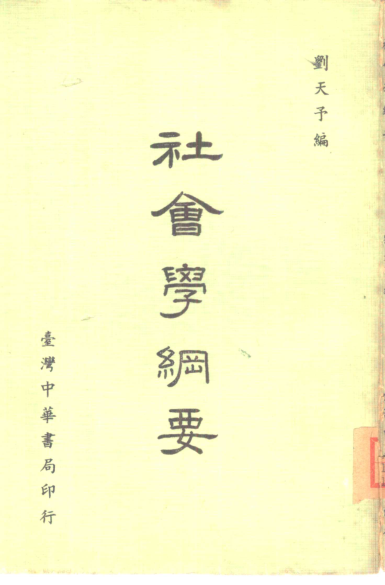 劉天予編
社會學綱要
臺灣中華書局印行